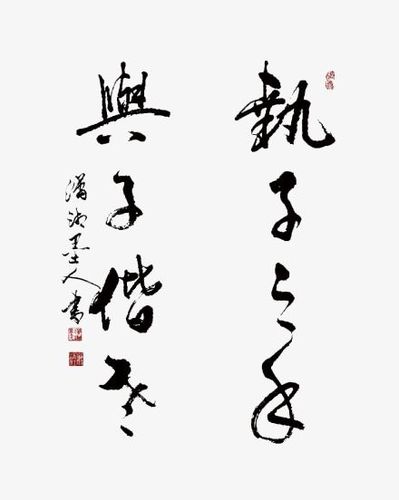 執子之手
與子偕老
瀟湘墨人書